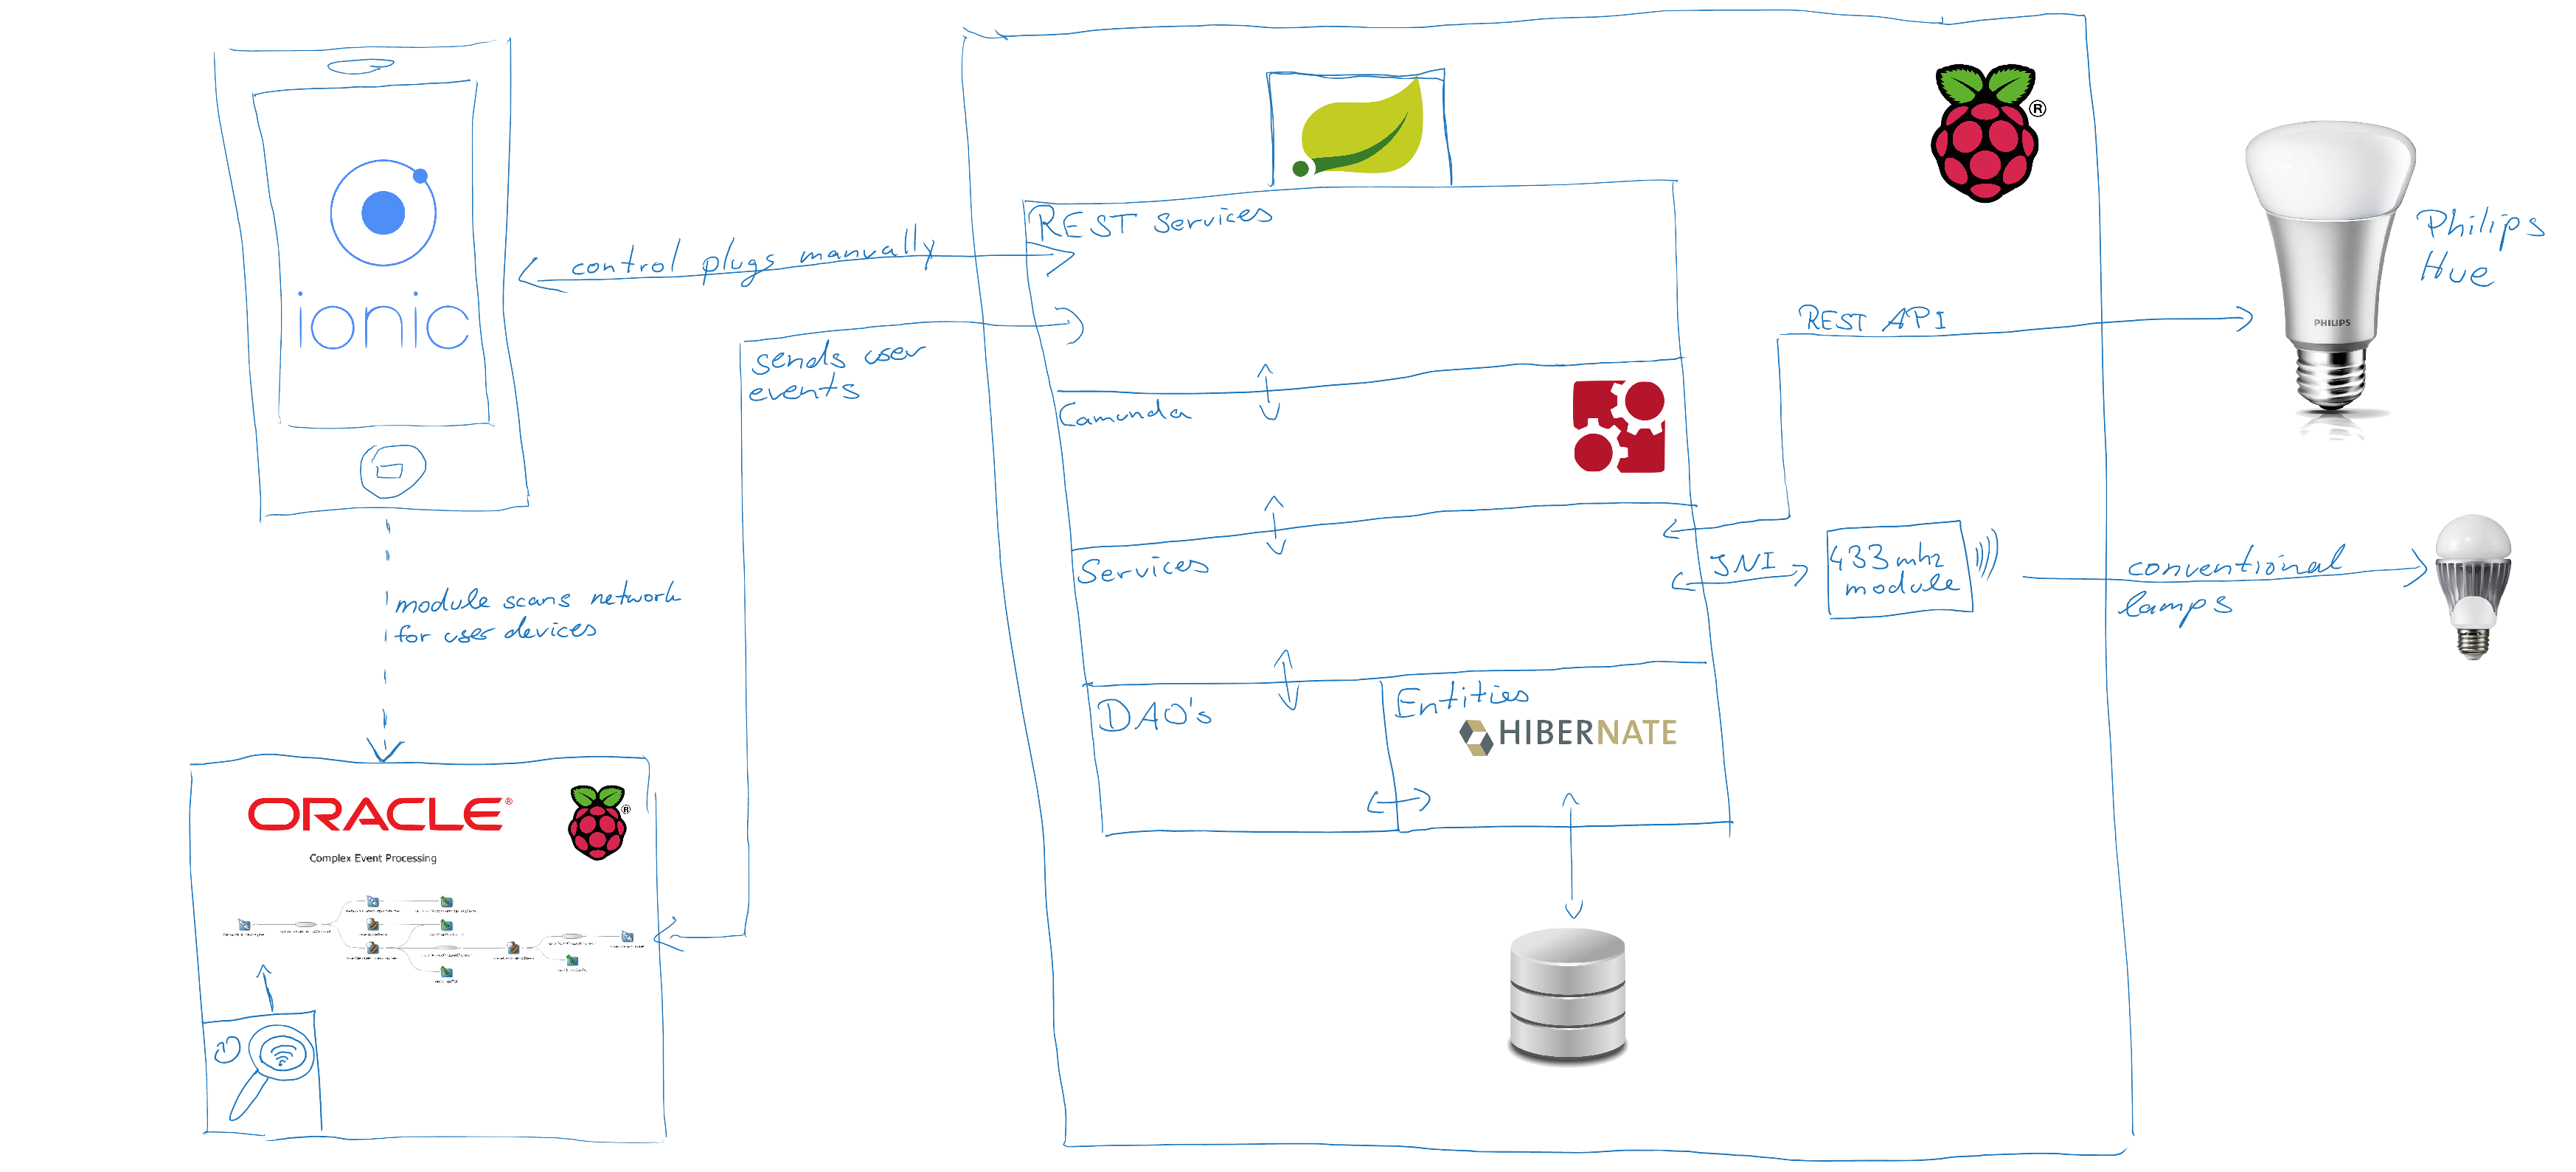 ionic
control plugs manually
sends user
events
module scans network
for user devices
ORACLE®
Complex Event Processing
®
REST Services
Camunda
Services
DAO's
Entities
HIBERNATE
®
REST API
JNI
433 mhz
module
conventional
lamps
PHILIPS
Philips
Hue